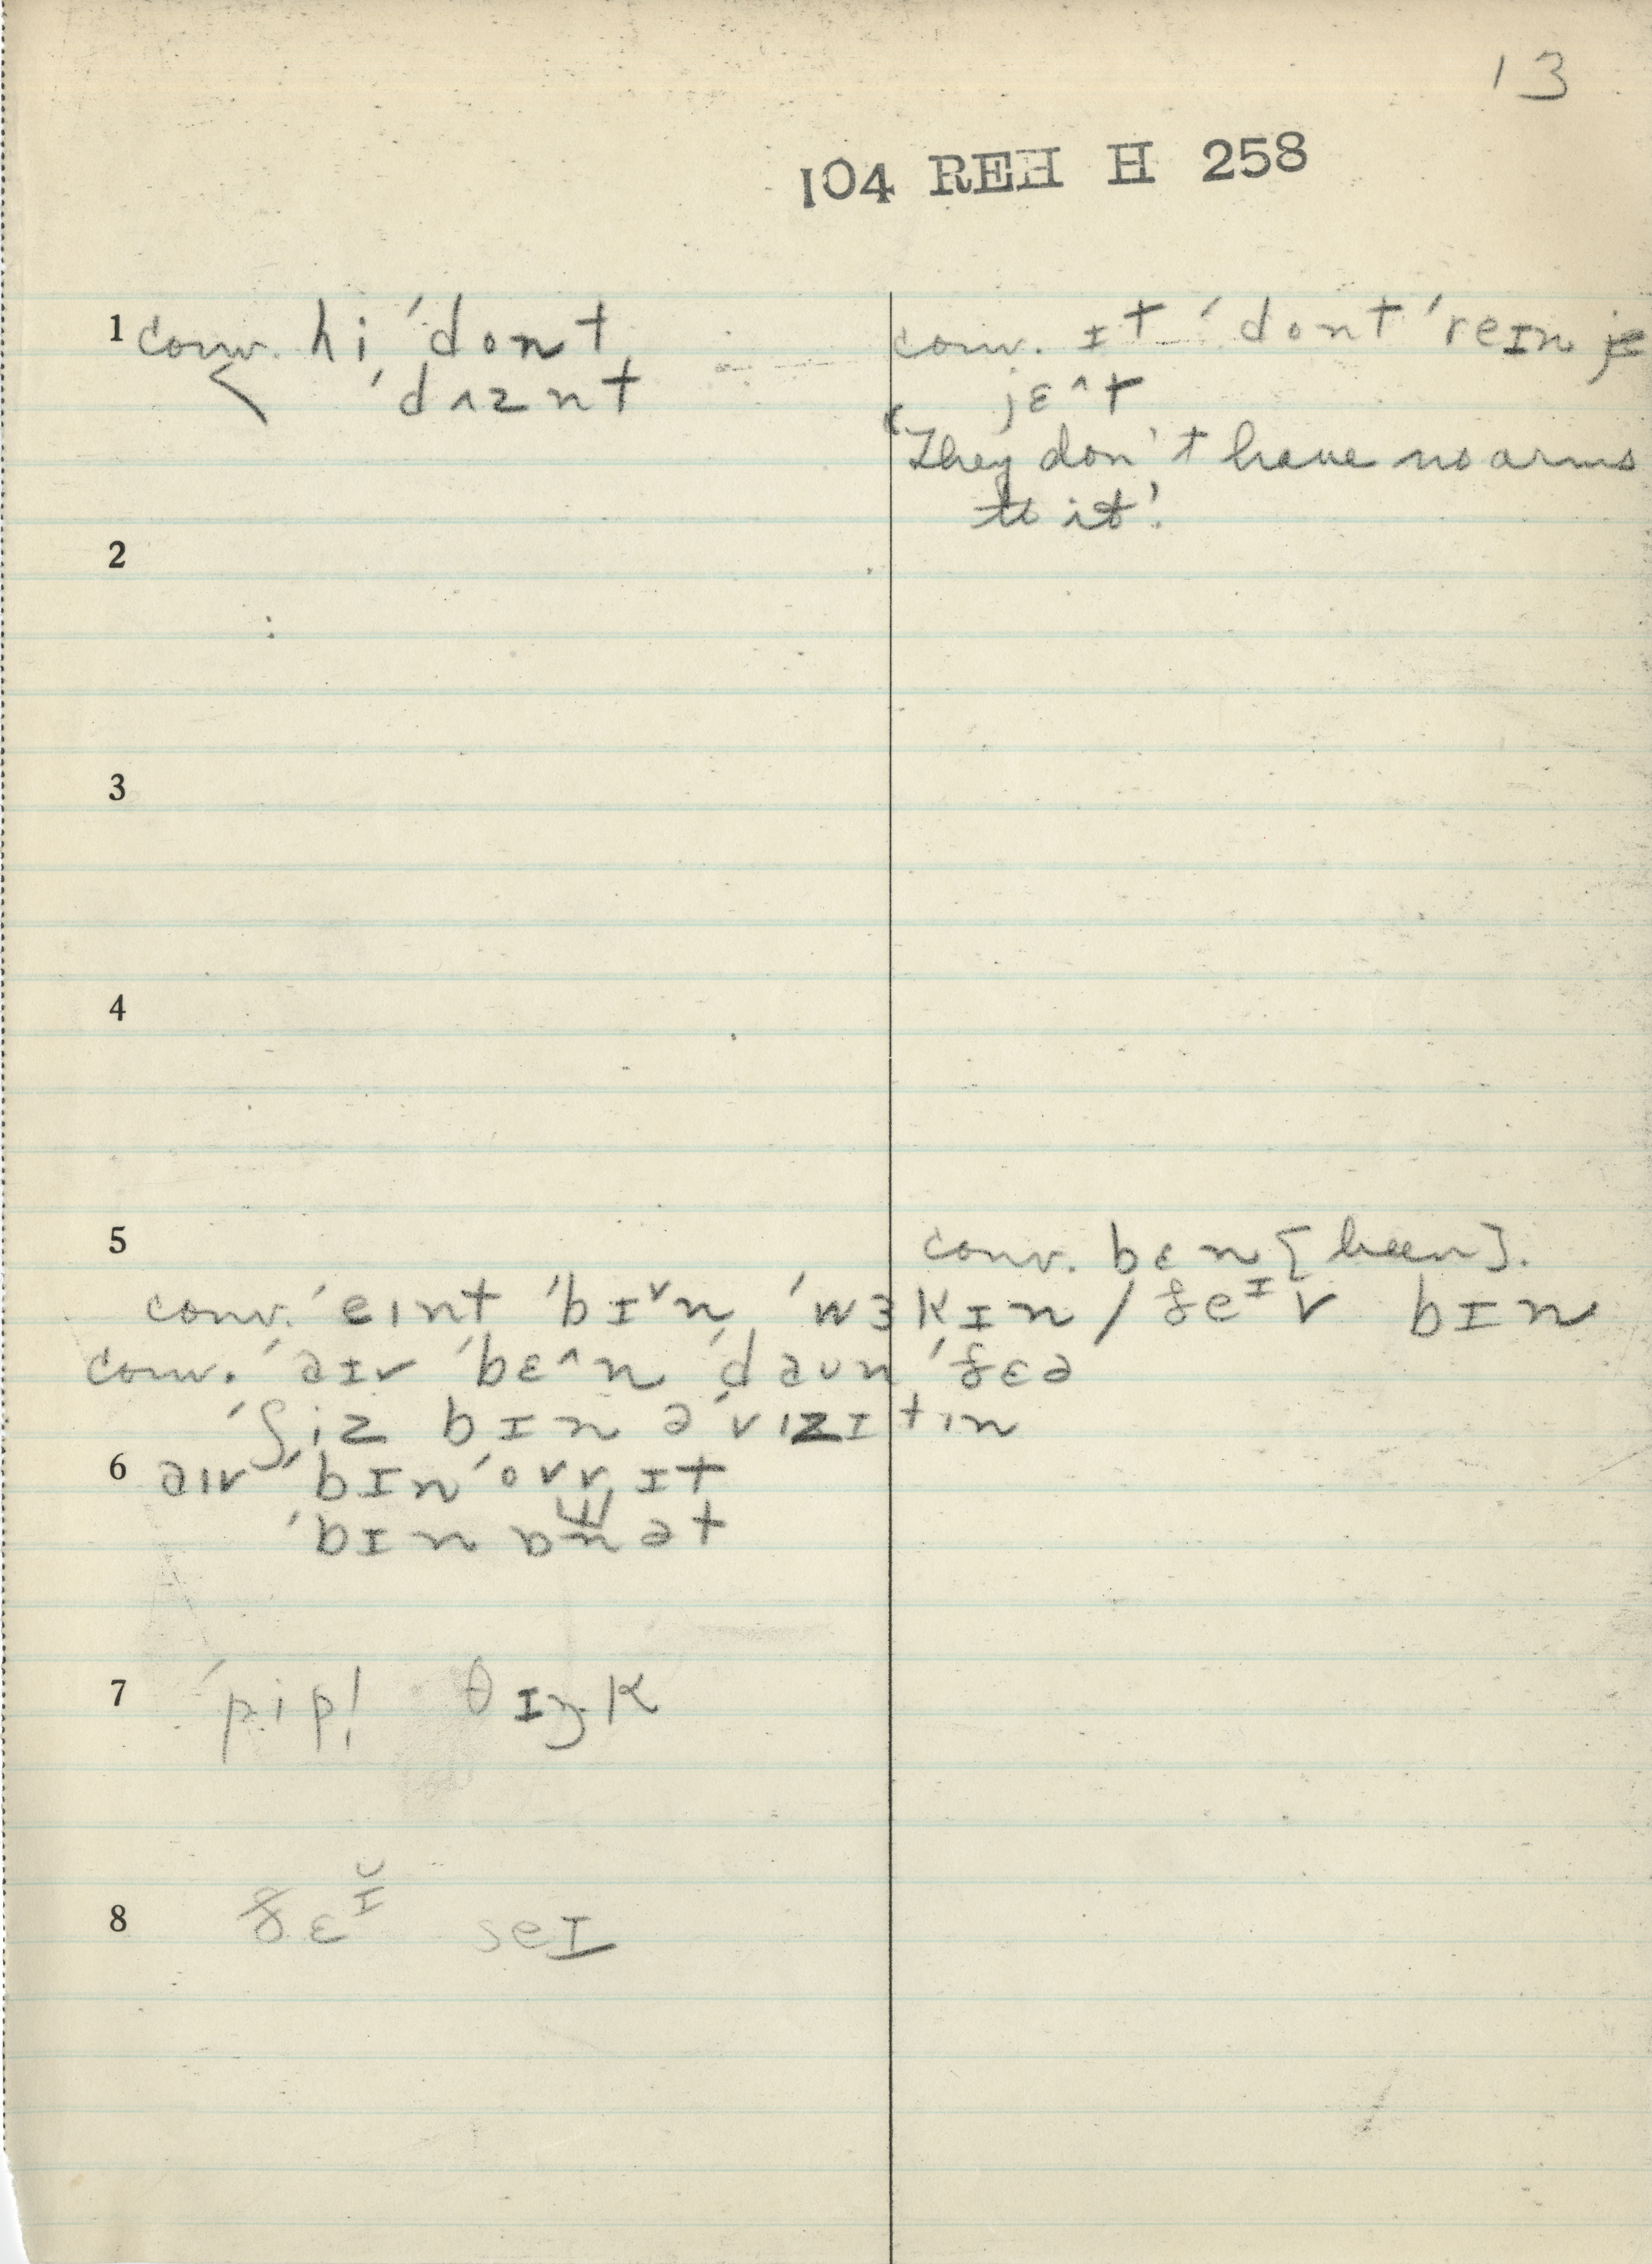 13
104 REH H 258
1 conv. hi ˈdont
ˈdʌznt
conv. ɪt ˈdont ˈreɪn
jɛ^t
"They don't have no arms
to it!
2
3
4
5
conv. bɛn [been].
conv. ˈeɪnt ˈbɪˇn ˈwɜkɪn / ðeᶦv bɪn
conv. ˈaɪv ˈbɛ^n ˈdaʊn ˈðɛə
ˈʃiz bɪn əˈvɪzɪtɪn
6 aɪv ˈbɪn ˈovr ɪt
ˈbɪn ət
7 ˈpip! θɪŋk
8 ðɛᶦ̆ seɪ